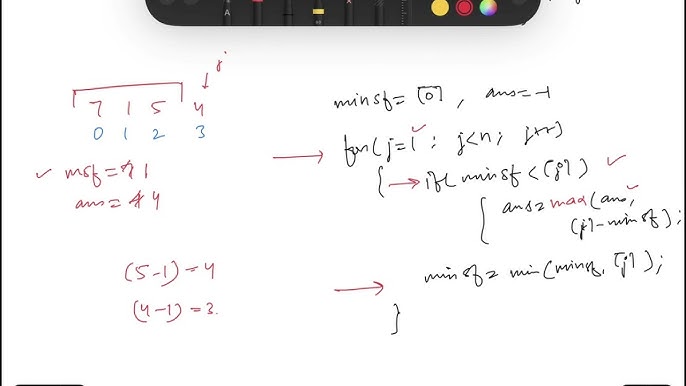 j
7 1 5 4
0 1 2 3
msf = 7 1
ans = 1 4
(5-1) = 4
(4-1) = 3.
minsf = [0] , ans = -1
for(j=1; j<n; j++)
{ if( minsf < [j])
{ ans = max(ans,
[j]-minsf);
minsf = min(minsf, [j]);
}